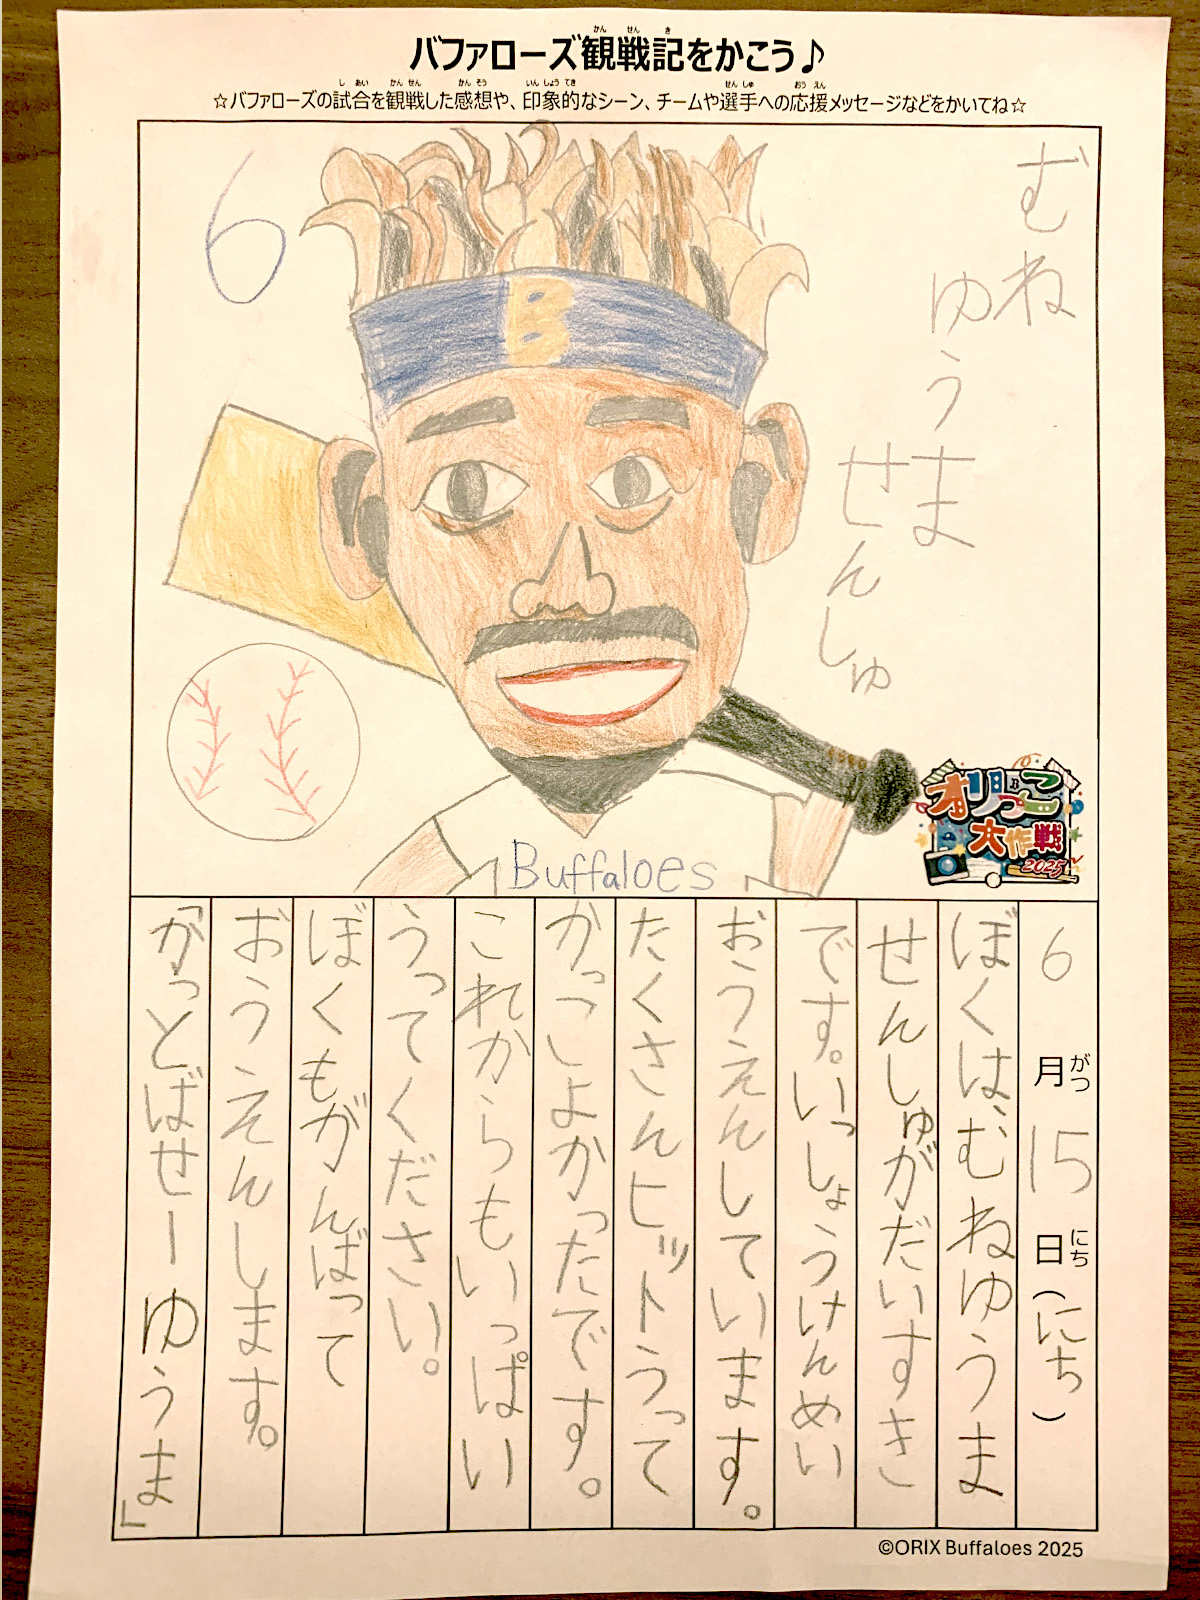 バファローズ観戦記をかこう♪
☆バファローズの試合を観戦した感想や、印象的なシーン、チームや選手への応援メッセージなどをかいてね☆
6
むね
ゆうま
せんしゅ
B
Buffaloes
オリっこ
大作戦
2025
6月15日(にち)
ぼくはむねゆうま
せんしゅがだいすき
です。いっしょうけんめい
おうえんしています。
たくさんヒットうって
かっこよかったです。
これからもいっぱい
うってください。
ぼくもがんばって
おうえんします。
「かっとばせーゆうま」
©ORIX Buffaloes 2025